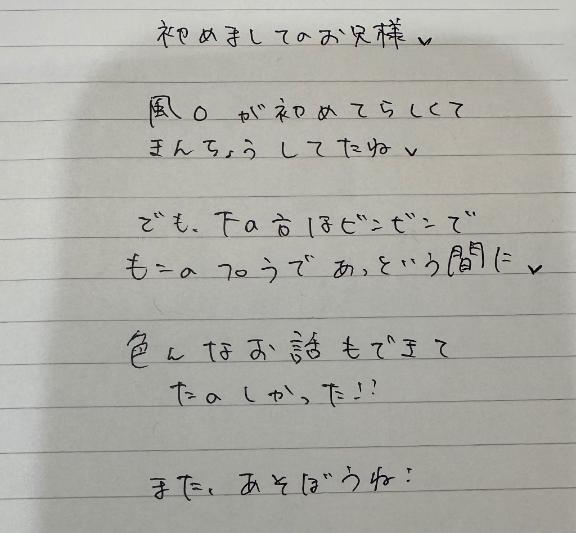 初めましてのお兄様✓
風〇が初めてらしくて
きんちょうしてたね✓
でも、下の方はビンビンで
もこのフロうであっという間に✓
色んなお話もできて
たのしかった!!
また、あそぼうね!